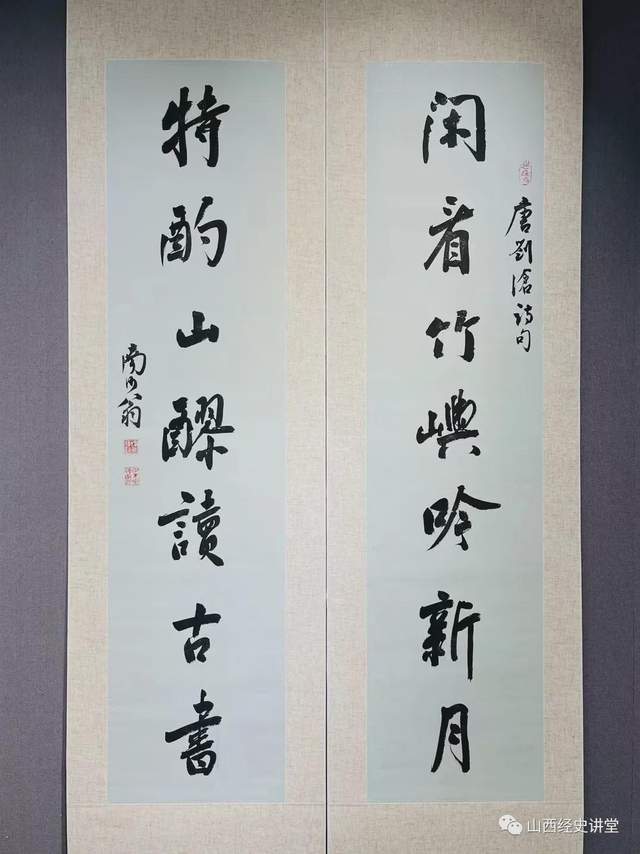 閑看竹嶼吟新月
唐劉滄詩句
特酌山醪讀古書
南少翁
山西经史讲堂